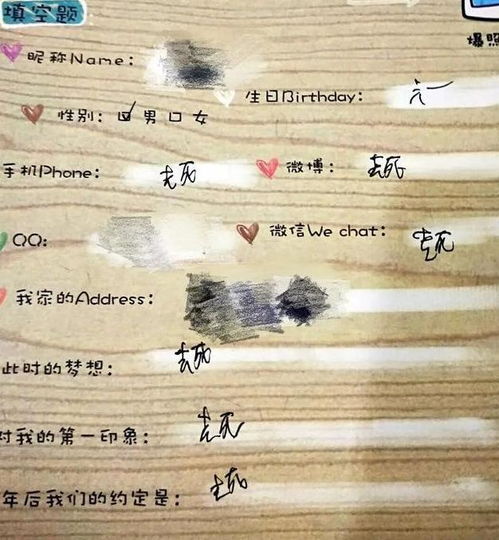 填空题
爆照
昵称Name：
生日Birthday：
性别：☑男 口女
手机Phone： 去死
微博： 去死
QQ：
微信We chat： 去死
我家的Address：
此时的梦想： 去死
对我的第一印象： 去死
年后我们的约定是： 去死